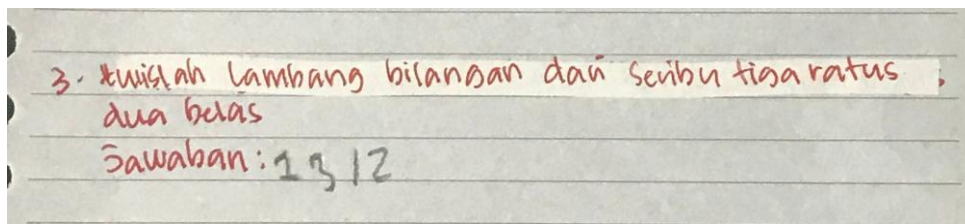 3. tulislah lambang bilangan dari seribu tiga ratus,
dua belas
Jawaban: 1312